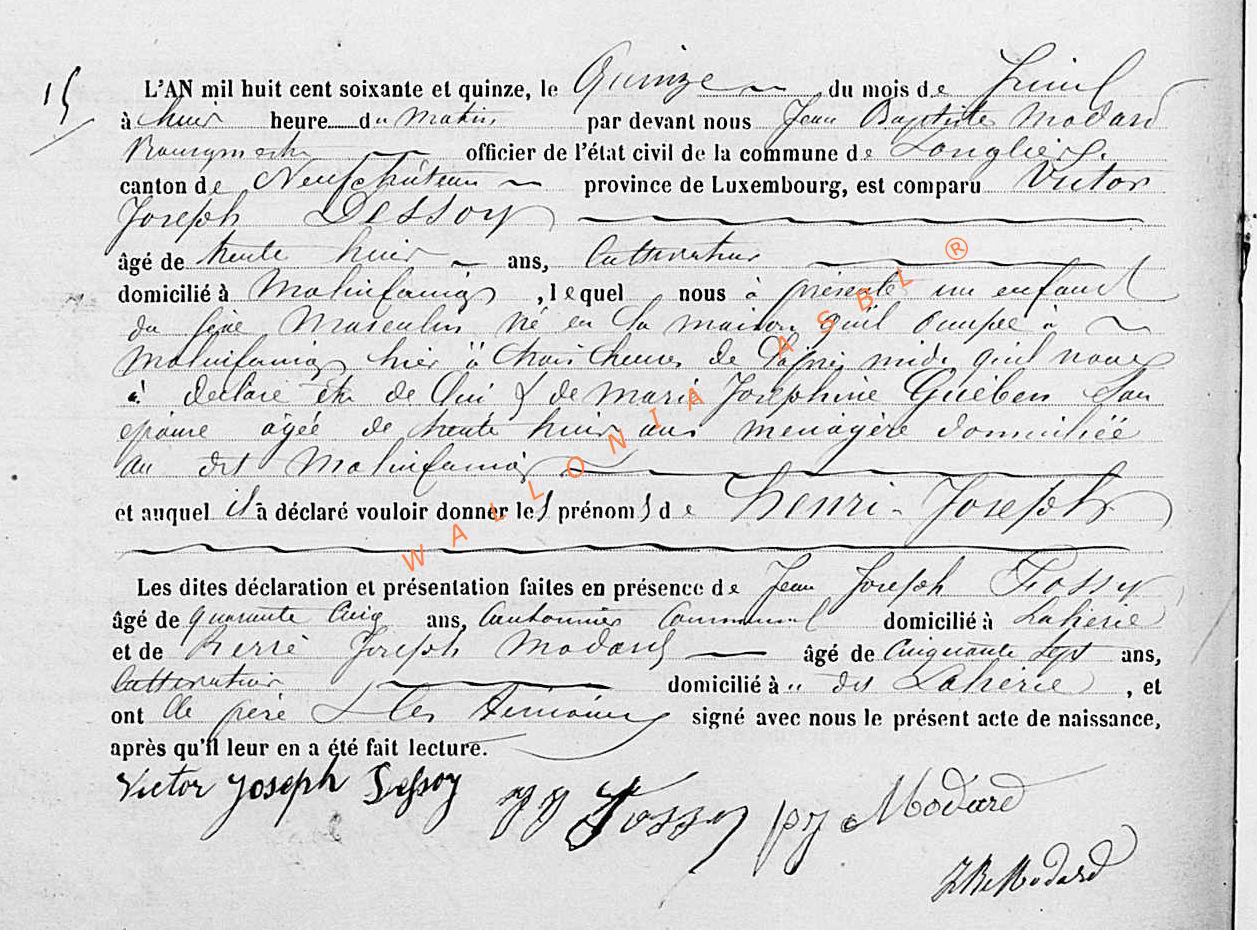 15
L'AN mil huit cent soixante et quinze, le Quinze du mois de
à huit heure du Matin par devant nous Jean Baptiste Modard
Bourgmestre officier de l'état civil de la commune de Longlier,
canton de Neufchâteau province de Luxembourg, est comparu Victor
Joseph Dessoy
âgé de trente huit ans, Cultivateur
domicilié à Molinfaing, lequel nous à présenté un enfant
du sexe Masculin né en la maison qu'il occupe à
Molinfaing hier à trois heures de l'après midi qu'il nous
à déclaré être de Lui & de Marie Josephine Guében son
épouse âgée de trente huit ans ménagère domiciliée
au dit Molinfaing
et auquel il a déclaré vouloir donner les prénoms de Henri-Joseph
Les dites déclaration et présentation faites en présence de Jean Joseph Fossy
âgé de quarante Cinq ans, Cantonnier Communal domicilié à Laherie
et de Pierre Joseph Modard âgé de Cinquante Sept ans,
Cultivateur domicilié à " dit Laherie, et
ont le père & les témoins signé avec nous le présent acte de naissance,
après qu'il leur en a été fait lecture.
Victor Joseph Dessoy JJ Fossy PJ Modard
JBModard
WALLONIA ASBL ®